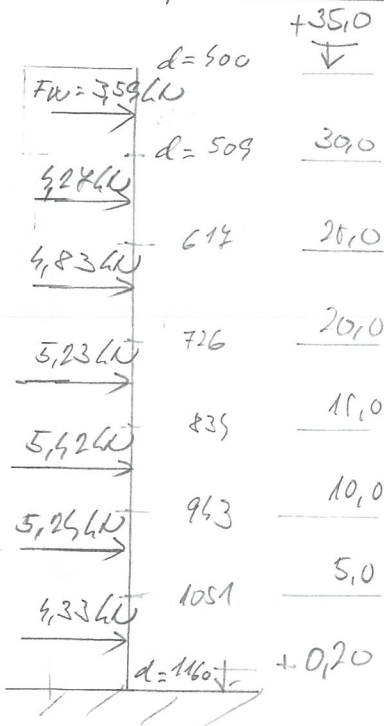 +35,0
d=400
Fw=3,59kN
d=509 30,0
4,27kN
617 25,0
4,83kN
726 20,0
5,23kN
834 15,0
5,42kN
943 10,0
5,24kN
1051 5,0
4,33kN
d=1160 +0,20